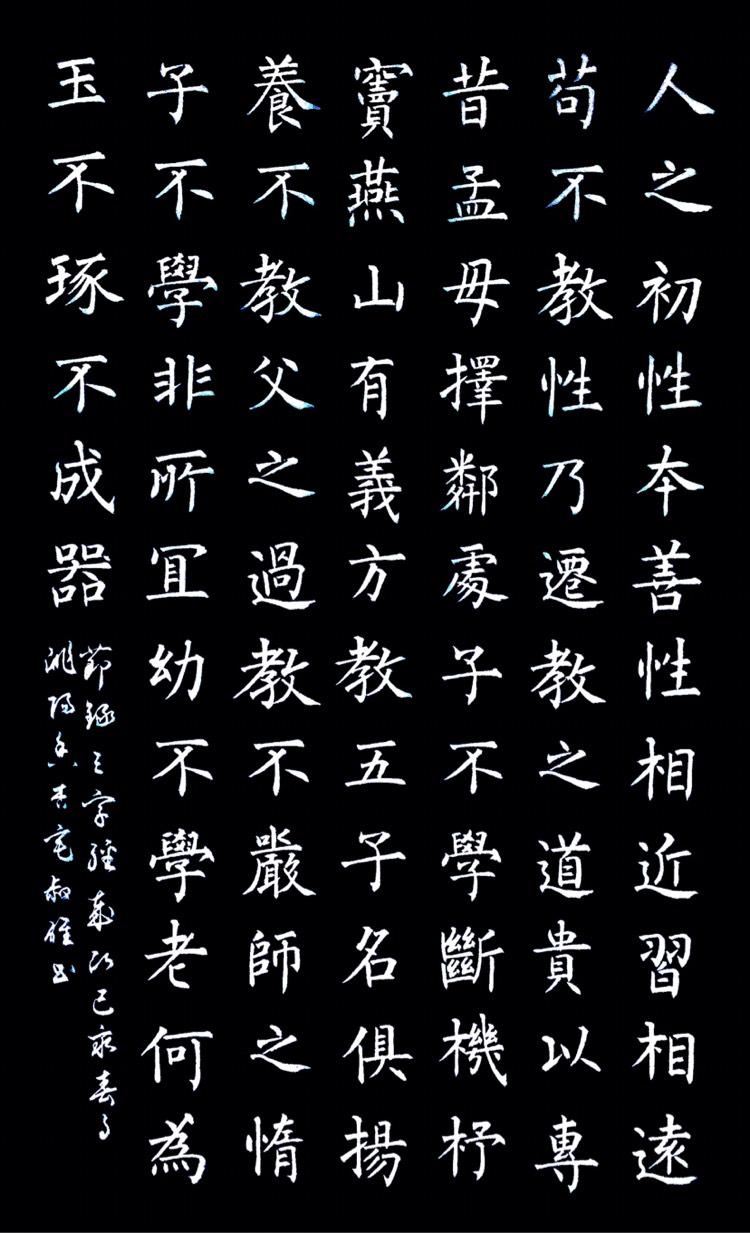 人之初性本善性相近習相遠
苟不教性乃遷教之道貴以專
昔孟母擇鄰處子不學斷機杼
竇燕山有義方教五子名俱揚
養不教父之過教不嚴師之惰
子不學非所宜幼不學老何為
玉不琢不成器
節錄三字經歲次己亥春月